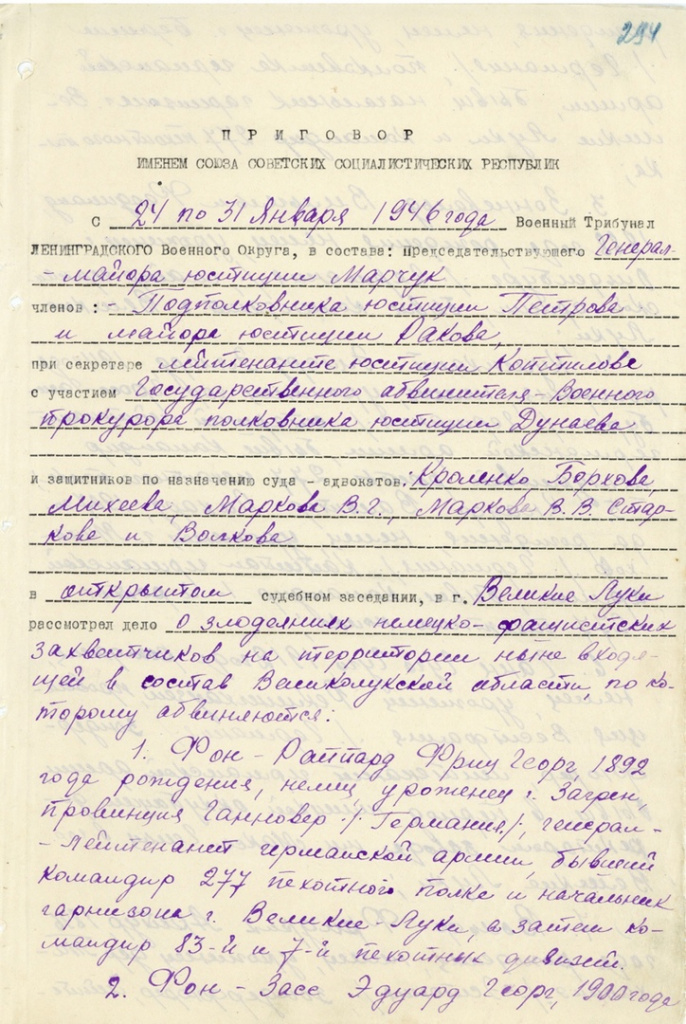 294
ПРИГОВОР
ИМЕНЕМ СОЮЗА СОВЕТСКИХ СОЦИАЛИСТИЧЕСКИХ РЕСПУБЛИК
С 24 по 31 Января 1946 года Военный Трибунал
ЛЕНИНГРАДСКОГО Военного Округа, в составе: председательствующего Генерал-
-майора юстиции Марчук
членов:- Подполковника юстиции Петрова
и майора юстиции Ракова,
при секретаре лейтенанте юстиции Котлилове
с участием Государственного обвинителя-Военного
прокурора полковника юстиции Дунаева
и защитников по назначению суда - адвокатов: Кроленко, Борхова,
Михеева, Маркова В.Г., Маркова В.В. Стар-
кова и Волкова
в открытом судебном заседании, в г. Великие Луки
рассмотрел дело о злодеяниях немецко-фашистских
захватчиков на территории ныне входя-
щей в состав Великолукской области, по ко-
торому обвиняются:
1. Фон-Раппард Фриц Георг, 1892
года рождения, немец, уроженец г. Загрен,
провинция Ганновер /Германия/, генерал-
-лейтенант германской армии, бывший
командир 277 пехотного полка и начальник
гарнизона г. Великие-Луки, а затем ко-
мандир 83-й и 7-й пехотных дивизий.
2. Фон-Засс Эдуард Георг, 1900 года